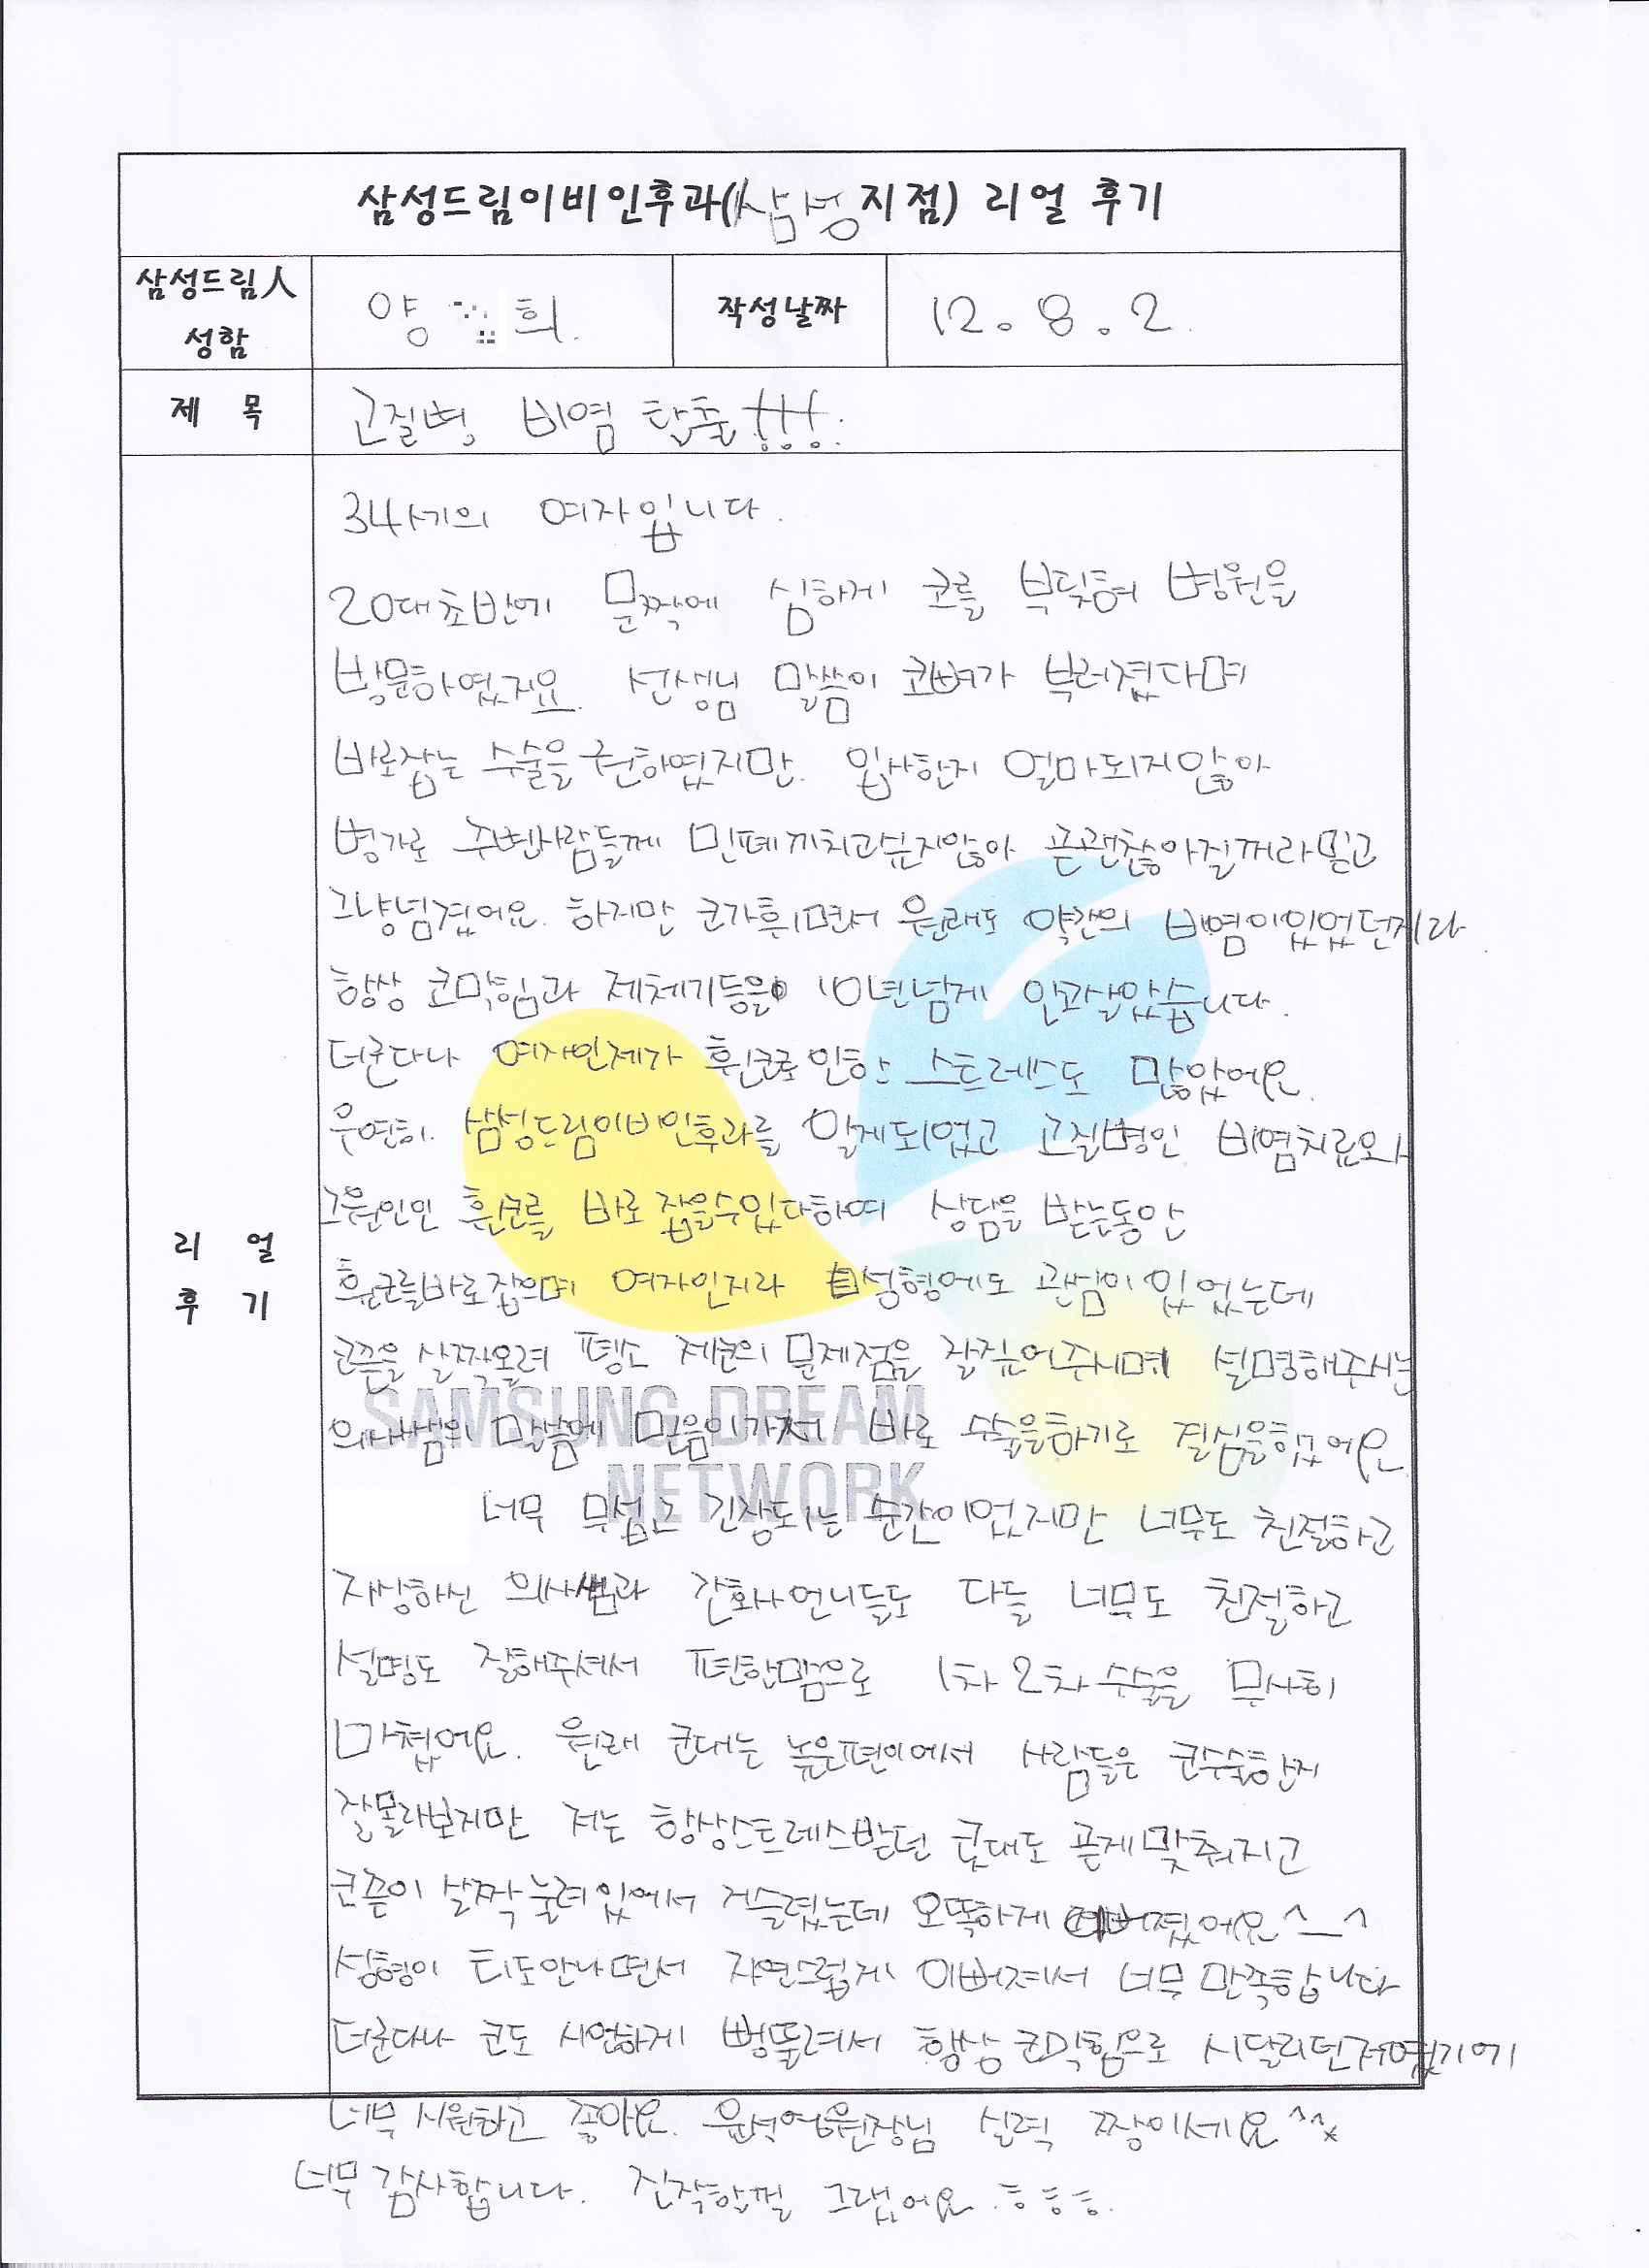 삼성드림이비인후과(삼성지점) 리얼 후기
삼성드림人 성함
양 희.
작성날짜
12. 8. 2.
제 목
고질병 비염 탈출!!!.
리 얼
후 기
34세의 여자입니다.
20대초반에 문짝에 심하게 코를 부딪혀 병원을
방문하였지요. 선생님 말씀이 코뼈가 부러졌다며
바로잡는 수술을 권하였지만. 입사한지 얼마되지않아
병가로 주변사람들께 민폐끼치고싶지않아 곧괜찮아질꺼라믿고
그냥넘겼어요. 하지만 코가휘면서 원래도 약간의 비염이있었던지라
항상 코막힘과 재채기등을 10년넘게 안고살았습니다.
더군다나 여자인제가 휜코로인한 스트레스도 많았어요.
우연히. 삼성드림이비인후과를 알게되었고 고질병인 비염치료와
그원인인 휜코를 바로 잡을수있다하여 상담을 받는동안
휜코를바로잡으며 여자인지라 성형에도 관심이 있었는데
코끝을 살짝올려 평소 제코의 문제점을 잘짚어주시며 설명해주시는
의사쌤의 말씀에 믿음이가서 바로 수술을하기로 결심을했어요
너무 무섭고 긴장되는 순간이었지만 너무도 친절하고
자상하신 의사쌤과 간호사언니들도 다들 너무도 친절하고
설명도 잘해주셔서 편한맘으로 1차 2차 수술을 무사히
마쳤어요. 원래 콧대는 높은편이에서 사람들은 코수술한지
잘몰라보지만 저는 항상스트레스받던 콧대도 곧게맞춰지고
코끝이 살짝 눌려있에서 거슬렸는데 오똑하게 이뻐졌어요^_^
성형이 티도안나면서 자연스럽게 이뻐져서 너무 만족합니다
더군다나 코도 시원하게 뻥뚤려서 항상 코막힘으로 시달리던저였기에
너무 시원하고 좋아요. 원장님 실력 짱이세요^^*
너무 감사합니다. 진작할껄 그랬어요.ㅎㅎㅎ.
SAMSUNG DREAM
NETWORK